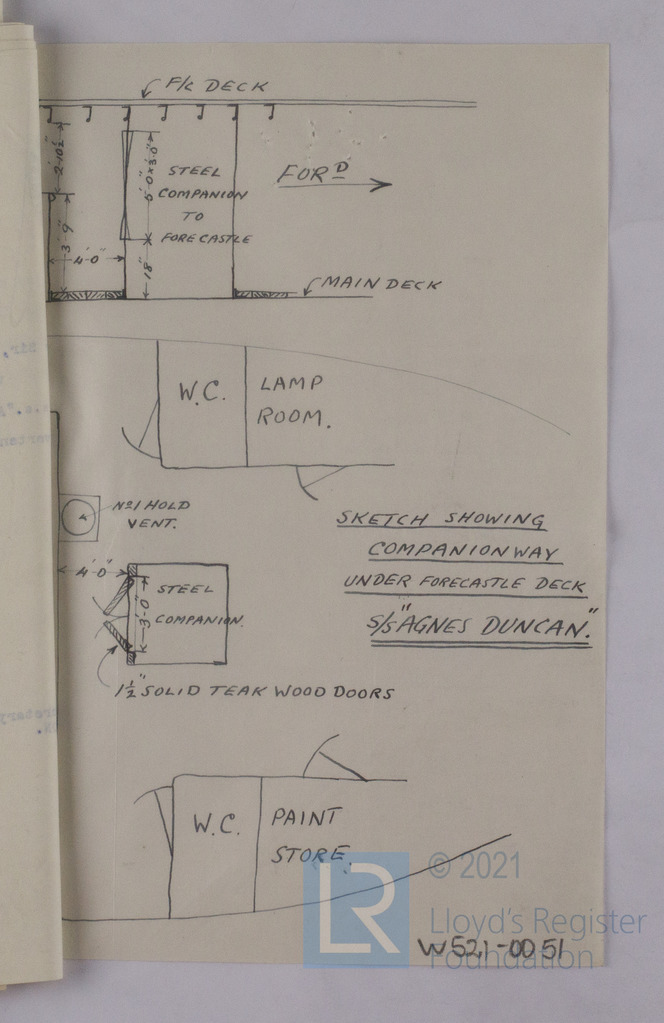 F/C DECK
2'-10½"
5'-0" x 3'-0"
STEEL
COMPANION
TO
FORECASTLE
FORD
3'-9"
4'-0"
18"
MAIN DECK
W.C.
LAMP
ROOM.
No1 HOLD
VENT.
4'-0"
3'-0"
STEEL
COMPANION.
1½" SOLID TEAK WOOD DOORS
SKETCH SHOWING
COMPANIONWAY
UNDER FORECASTLE DECK
S/S "AGNES DUNCAN."
W.C.
PAINT
STORE.
LR
© 2021
Lloyd's Register
Foundation
W521-0051